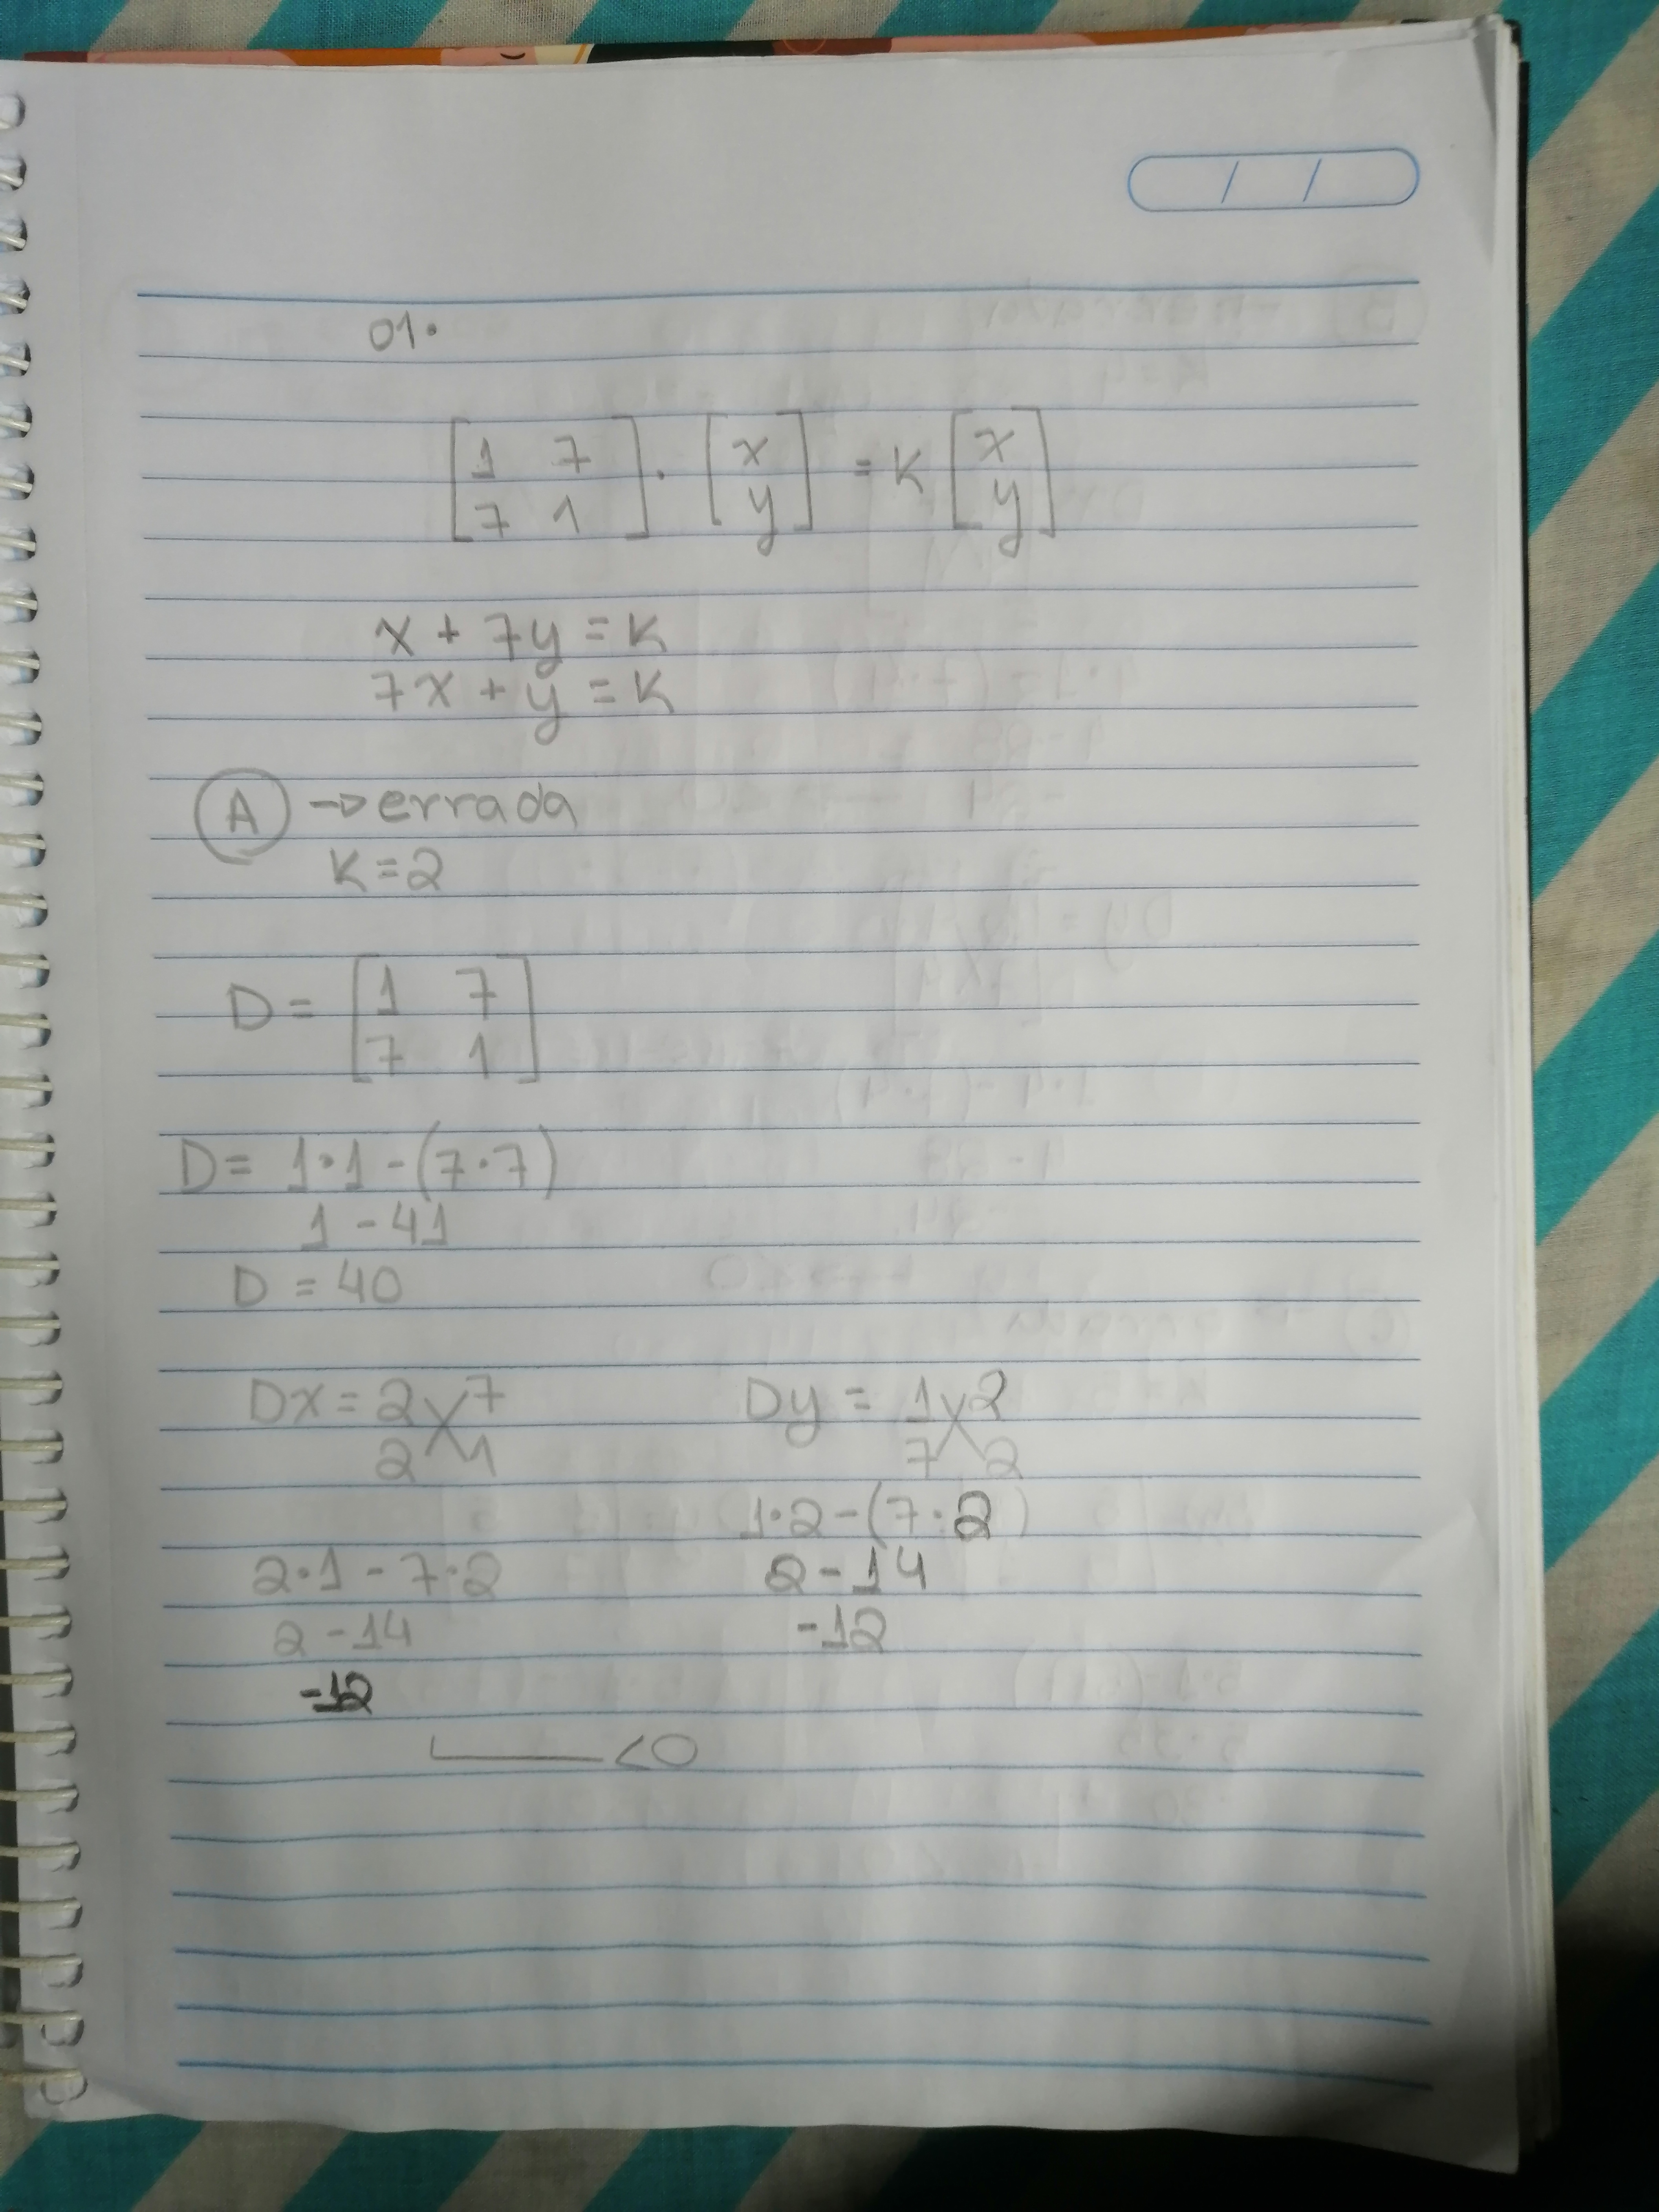 01.
[1 7
7 1] . [x
y] = K [x
y]
x + 7y = K
7x + y = K
A → errada
K = 2
D = [1 7
7 1]
D = 1·1 - (7·7)
1 - 41
D = 40
Dx = 2 7
2 1
Dy = 1 2
7 2
2·1 - 7·2
2 - 14
-12
1·2 - (7·2)
2 - 14
-12
<0